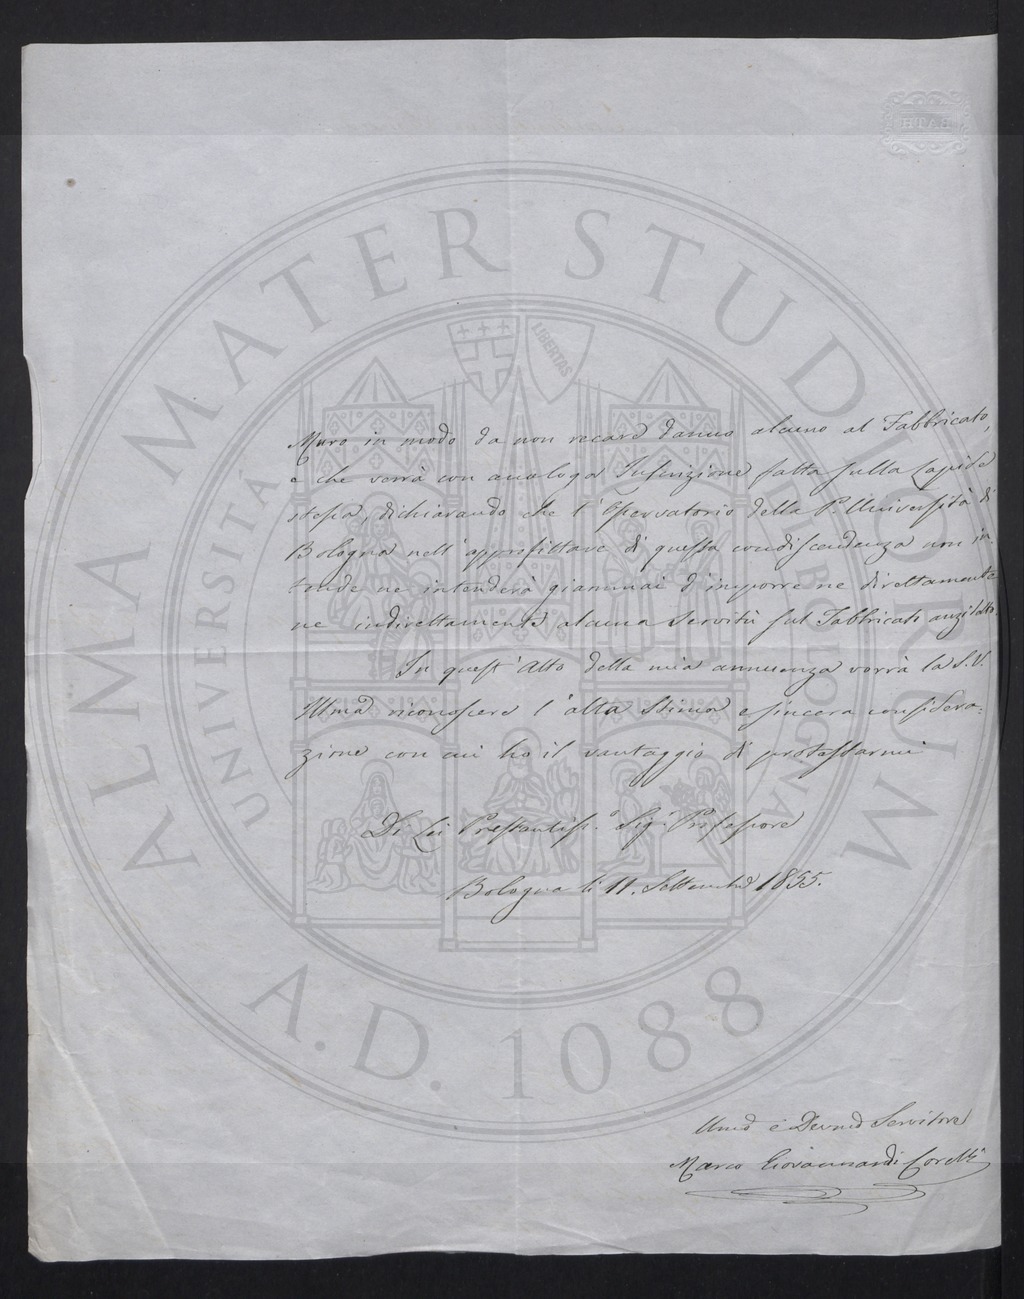 BATH
Muro in modo da non recare danno alcuno al Fabbricato,
e che verrà con analoga Iscrizione fatta sulla Lapide
stessa, dichiarando che l'Osservatorio della P. Università di
Bologna nell'approfittare di questa condiscendenza non in
tende ne intenderà giammai d'imporre ne direttamente
ne indirettamente alcuna Servitù sul Fabbricato anzidetto.
In quest'Atto della mia annuenza vorrà la S.V.
Illma riconoscere l'alta stima e sincera considera=
zione con cui ho il vantaggio di protestarmi
Di Lei Prestantiss.o Sig. Professore
Bologna li 11. Settembre 1855.
Umo e Devmo Servitore
Marco Giovannardi Corelli
ALMA MATER STUDIORUM
UNIVERSITÀ DI BOLOGNA
LIBERTAS
A.D. 1088